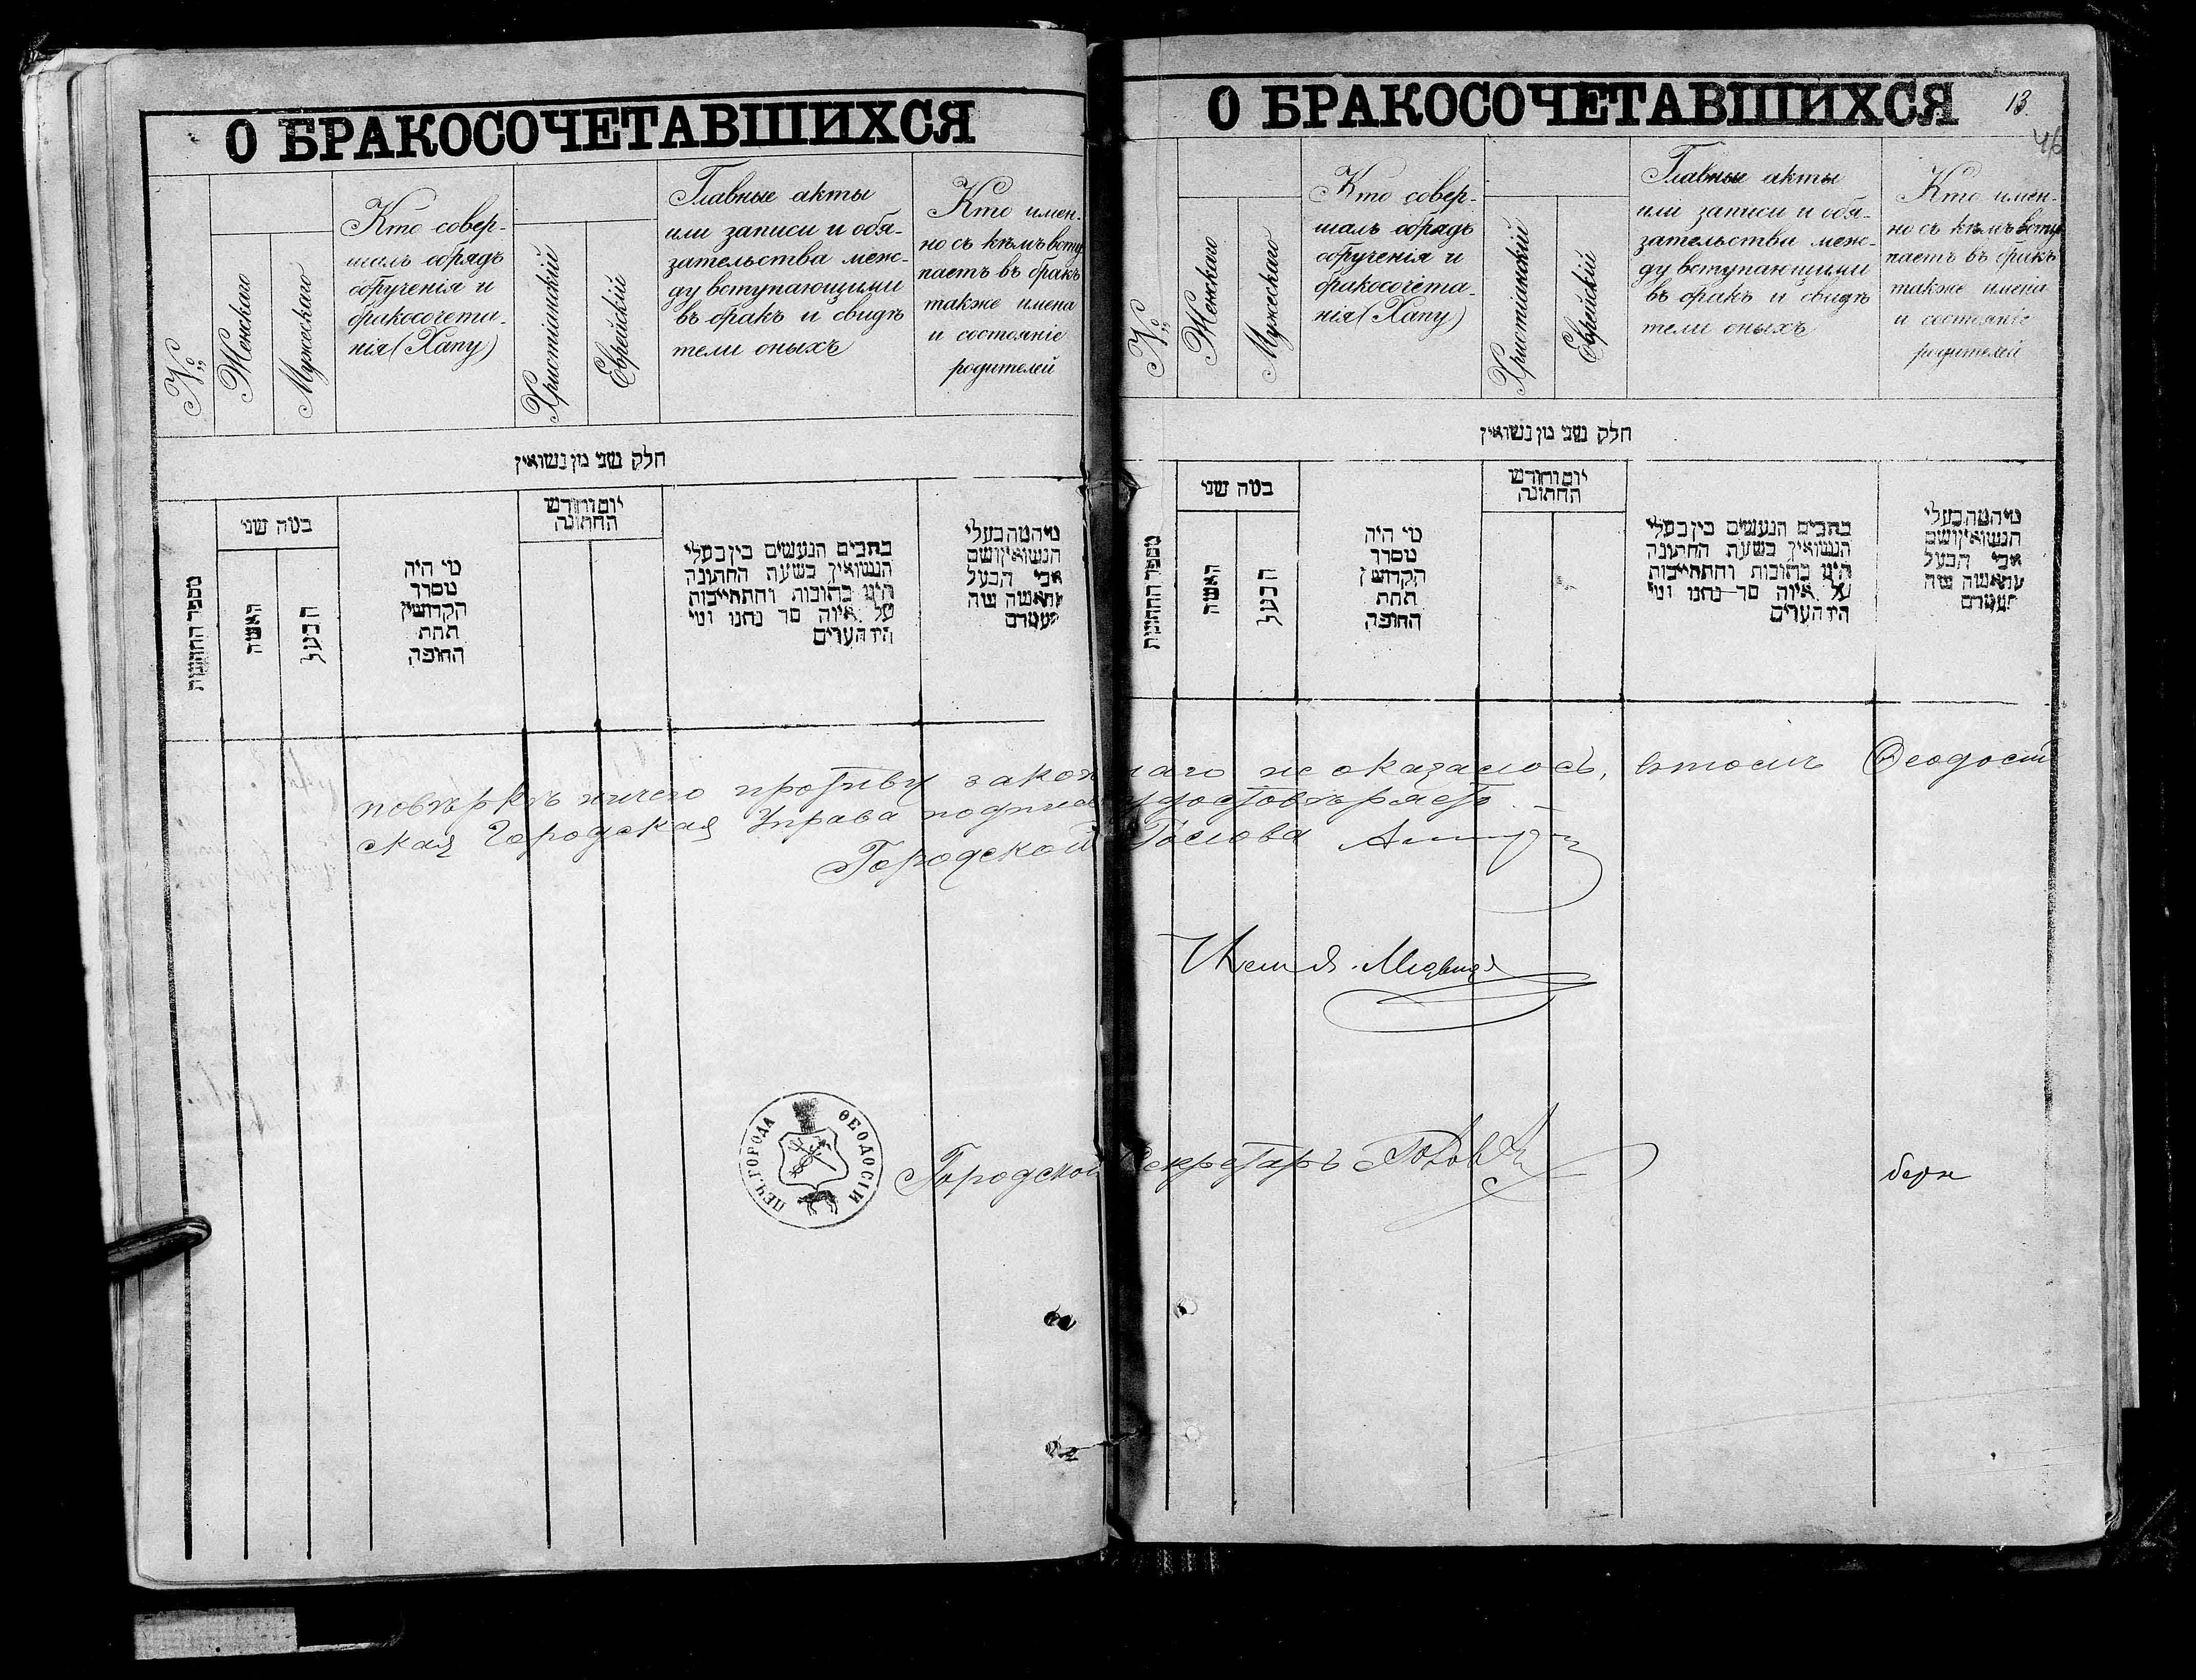 О БРАКОСОЧЕТАВШИХСЯ
№
Женскаго
Мужескаго
Кто совер-
шалъ обрядъ
обрученія и
бракосочета-
нія (Хапу)
Христіанскій
Еврейскій
Главные акты
или записи и обя-
зательства меж-
ду вступающими
въ бракъ и свидѣ
тели оныхъ
Кто имен-
но съ кѣмъ всту
паетъ въ бракъ
также имена
и состояніе
родителей
חלק שני מן נשואין
מספר החתונות
כמה שני
האשה
הבעל
מי היה
מסדר
הקדושין
תחת
החופה
יום וחודש
החתונה
כתבים הנעשים בין בעלי
הנשואין בשעת החתונה
היינו כתובות והתחייבות
על איזה סך נתנו ומי
היו העדים
מי המה בעלי
הנשואין ושם
אבי הבעל
והאשה מה
מעמדם
О БРАКОСОЧЕТАВШИХСЯ
13.
46
№
Женскаго
Мужескаго
Кто совер-
шалъ обрядъ
обрученія и
бракосочета-
нія (Хапу)
Христіанскій
Еврейскій
Главные акты
или записи и обя-
зательства меж-
ду вступающими
въ бракъ и свидѣ
тели оныхъ
Кто имен-
но съ кѣмъ всту
паетъ въ бракъ
также имена
и состояніе
родителей
חלק שני מן נשואין
מספר החתונות
כמה שני
האשה
הבעל
מי היה
מסדר
הקדושין
תחת
החופה
יום וחודש
החתונה
כתבים הנעשים בין בעלי
הנשואין בשעת החתונה
היינו כתובות והתחייבות
על איזה סך נתנו ומי
היו העדים
מי המה בעלי
הנשואין ושם
אבי הבעל
והאשה מה
מעמדם
повѣркѣ ничего противу законнаго не оказалось, втомъ Ѳеодосій
ская Городская Управа подписью удостовѣряетъ.
Городской Голова
Членъ
ПЕЧ. ГОРОДА ѲЕОДОСІИ
Городской Секретарь